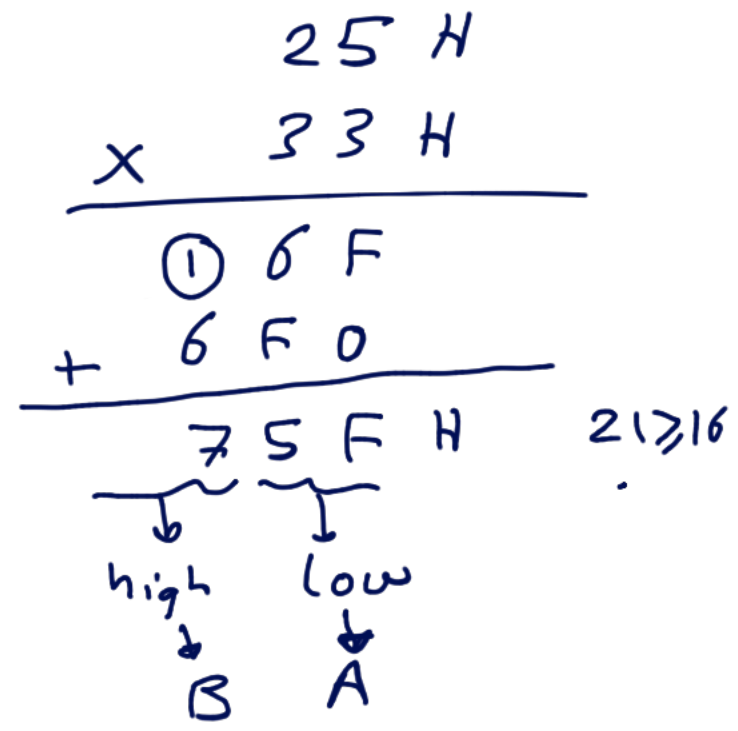 25 H
× 33 H
① 6 F
+ 6 F 0
7 5 F H 21⩾16
high low
B A